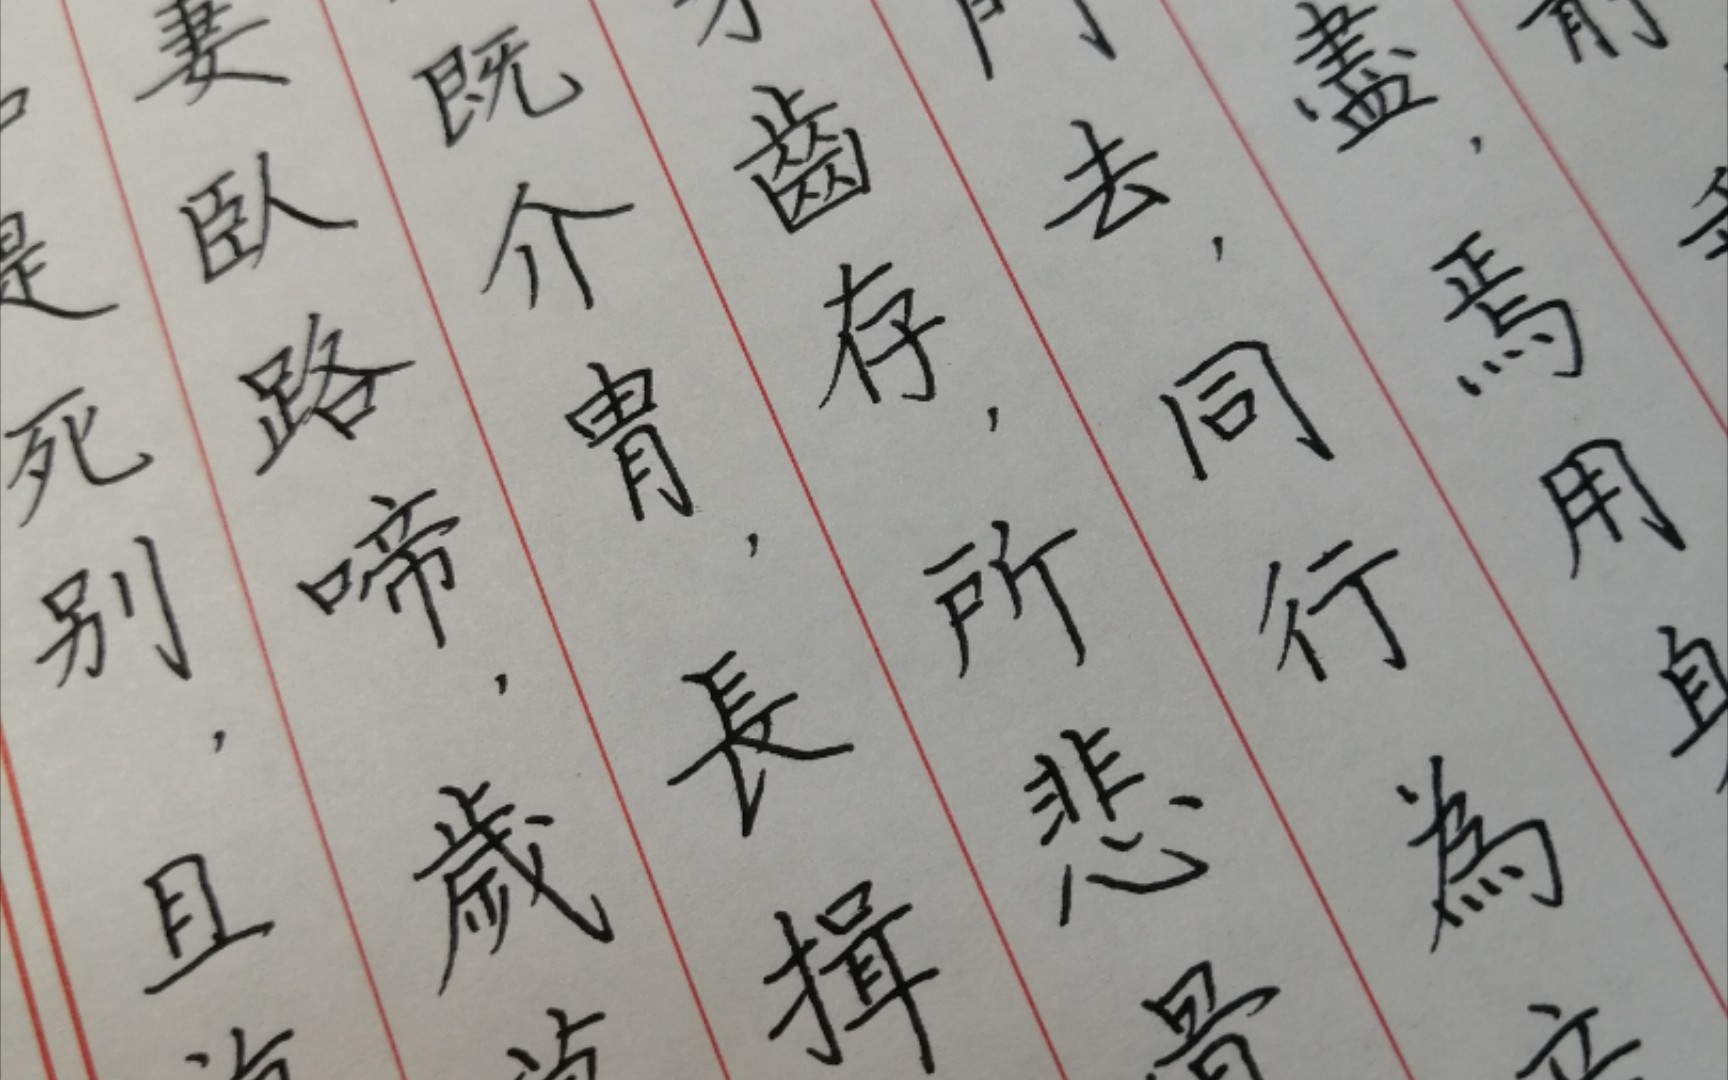 盡，焉用身
去，同行為
齒存，所悲骨
既介胄，長揖
妻臥路啼，歲
是死别，且